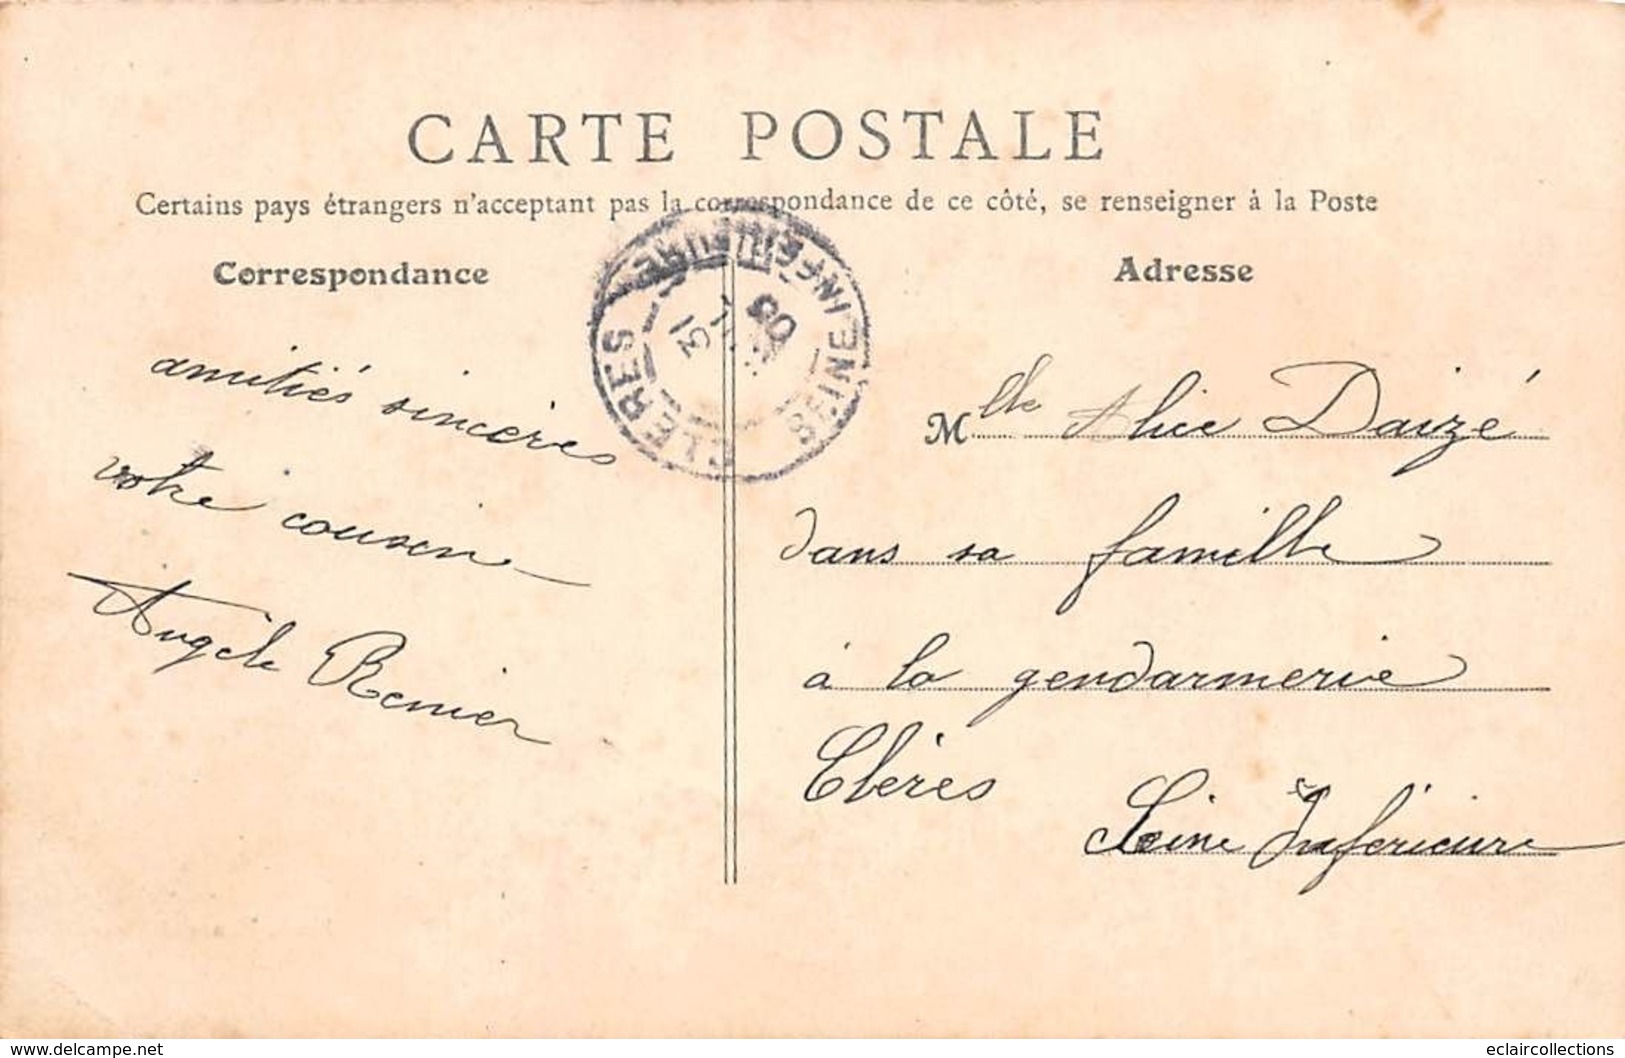 CARTE POSTALE
Certains pays étrangers n'acceptant pas la correspondance de ce côté, se renseigner à la Poste
Correspondance
amitiés sincères
votre cousin
Angèle Renier
CLERES SEINE INFERIEURE
31
08
Adresse
Mlle Alice Daizé
dans sa famille
à la gendarmerie
Clères
Seine Inférieure
www.delcampe.net
eclaircollections